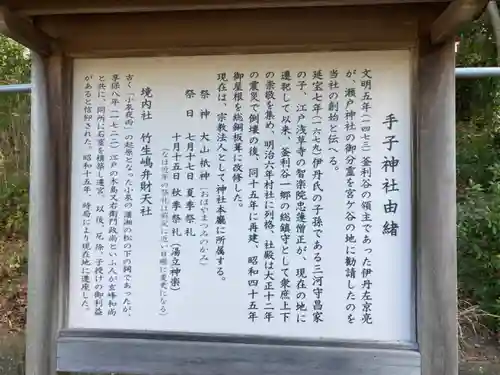 手子神社由緒
文明五年(一四七三)釜利谷の領主であった伊丹左京亮
が、瀬戸神社の御分霊を宮ケ谷の地に勧請したのを
当社の創始と伝へる。
延宝七年(一六七九)伊丹氏の子孫である三河守昌家
の子、江戸浅草寺の智楽院忠蓮僧正が、現在の地に
遷祀して以来、釜利谷一郷の総鎮守として衆庶上下
の崇敬を集め、明治六年村社に列格、社殿は大正十二年
の震災で倒壊の後、同十五年に再建、昭和四十五年
御屋根を総銅板葺に改修した。
現在は、宗教法人として神社本廳に所属する。
祭神 大山祇神(おほやまつみのかみ)
祭日 七月十七日 夏季祭礼
十月十五日 秋季祭礼(湯立神楽)
(なほ近年の祭礼は前記に近い日曜に変更になる)
境内社 竹生嶋弁財天社
古く「小泉夜雨」の起原となった小泉の瀟湘の松の下の祠であったが、
享保八年(一七二三)江戸の大島又右衛門政尚といふ人が玄峰和尚
と共に、同所に石窟を横築し遷宮、以後、厄除、子授けの御利益
があると信仰された。昭和十五年、時局により現在地に遷座した。